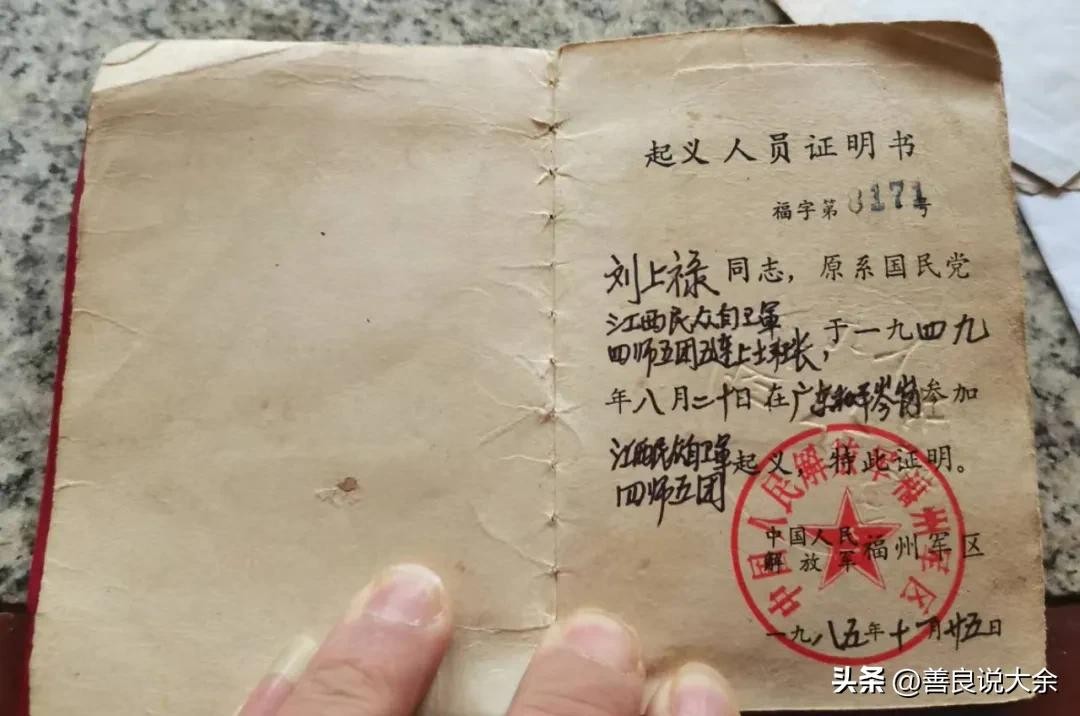 起义人员证明书
福字第3171号
刘上禄同志，原系国民党
江西民众自卫军
四师五团五连上士班长，于一九四九
年八月二十日在广东和平岑岗参加
江西民众自卫军起义，特此证明。
四师五团
中国人民解放军福州军区
中国人民
解放军福州军区
一九八五年十一月廿五日
头条 @善良说大余